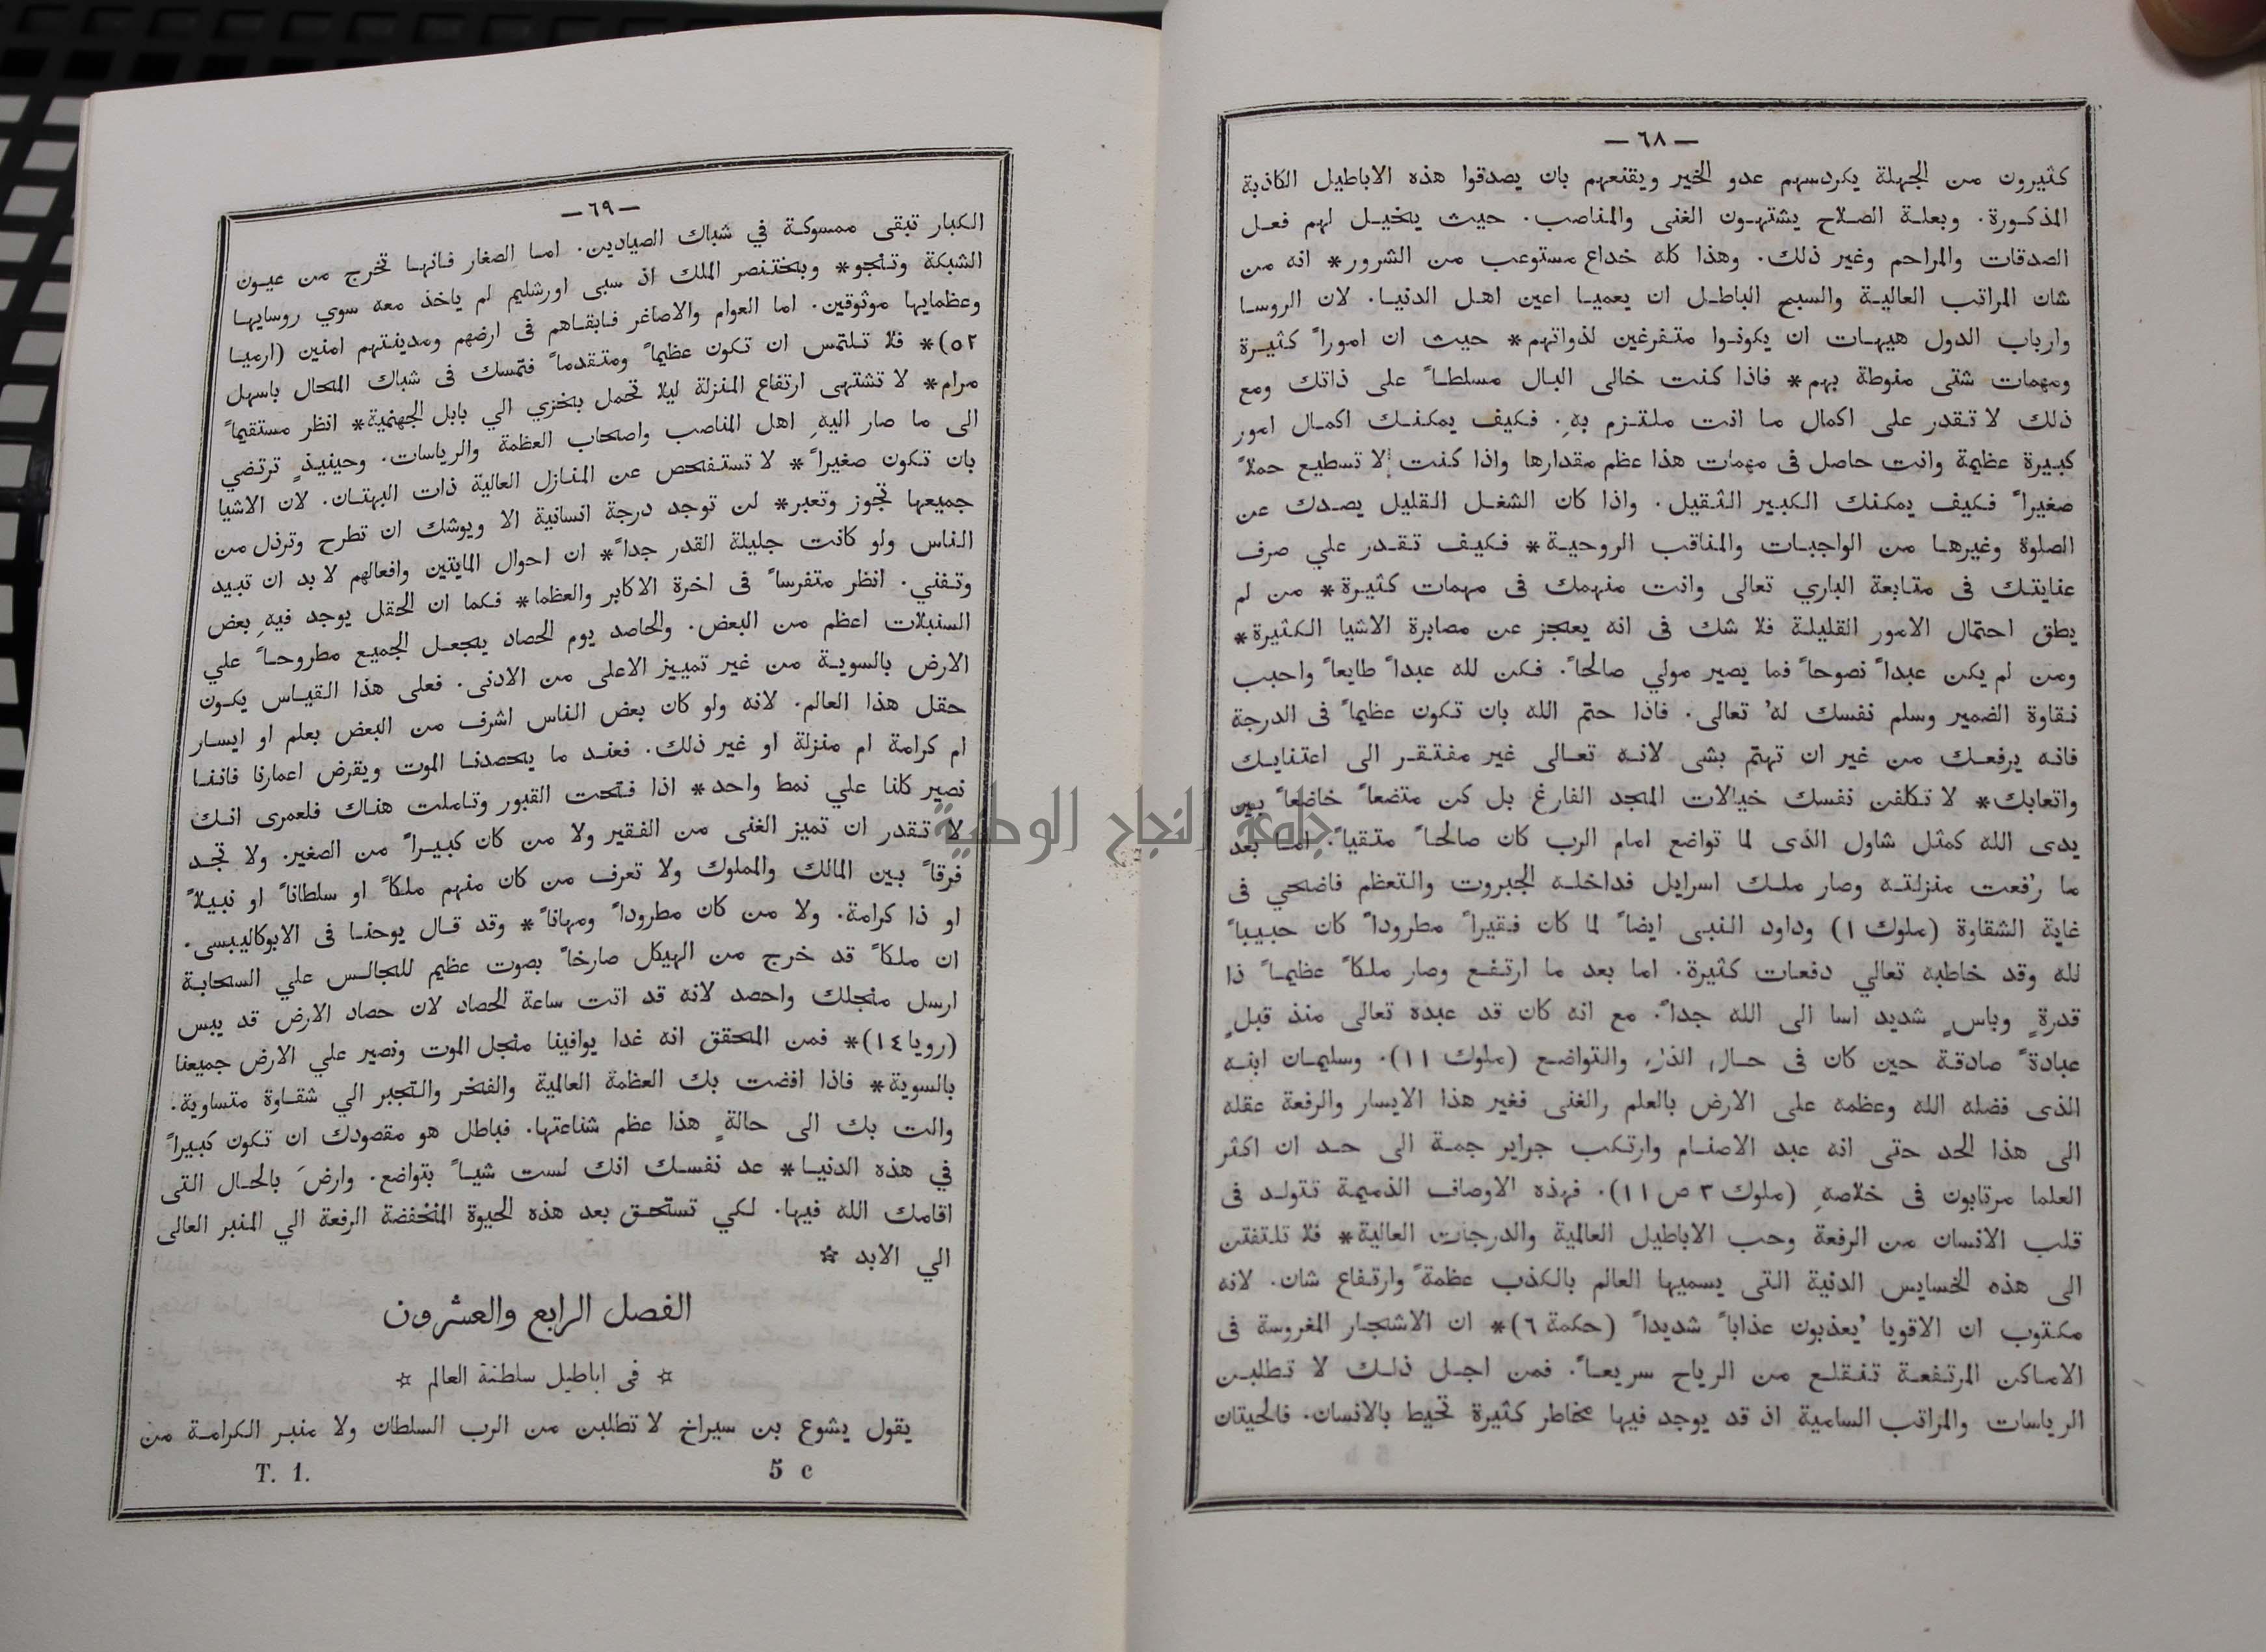 — ٦٨ —
كثيرون من الجهلة يكردسهم عدو الخير ويقنعهم بان يصدقوا هذه الاباطيل الكاذبة
المذكورة. وبعلة الصلاح يشتهون الغنى والمناصب. حيث يتخيل لهم فعل
الصدقات والمراحم وغير ذلك. وهذا كله خداع مستوعب من الشرور* انه من
شان المراتب العالية والسبح الباطل ان يعميا اعين اهل الدنيا. لان الروسا
وارباب الدول هيهات ان يكونوا متفرغين لذواتهم* حيث ان اموراً كثيرة
ومهمات شتى منوطة بهم* فاذا كنت خالى البال مسلطاً على ذاتك ومع
ذلك لا تقدر على اكمال ما انت ملتزم بهِ. فكيف يمكنك اكمال امور
كبيرة عظيمة وانت حاصل فى مهمات هذا عظم مقدارها واذا كنت لا تسطيع حملاً
صغيراً فكيف يمكنك الكبير الثقيل. واذا كان الشغل القليل يصدك عن
الصلوة وغيرها من الواجبات والمناقب الروحية* فكيف تقدر علي صرف
عنايتك فى متابعة الباري تعالى وانت منهمك فى مهمات كثيرة* من لم
يطق احتمال الامور القليلة فلا شك فى انه يعجز عن مصابرة الاشيا الكثيرة*
ومن لم يكن عبداً نصوحاً فما يصير مولي صالحاً. فكن لله عبداً طايعاً واحبب
نقاوة الضمير وسلم نفسك لهُ تعالى. فاذا حتم الله بان تكون عظيماً فى الدرجة
فانه يرفعك من غير ان تهتم بشى لانه تعالى غير مفتقر الى اعتنايك
واتعابك* لا تكلفن نفسك خيالات المجد الفارغ بل كن متضعاً خاضعاً بين
يدى الله كمثل شاول الذى لما تواضع امام الرب كان صالحاً متقياً. اما بعد
ما رُفعت منزلته وصار ملك اسرايل فداخله الجبروت والتعظم فاضحي فى
غاية الشقاوة (ملوك ١) وداود النبى ايضاً لما كان فقيراً مطروداً كان حبيباً
لله وقد خاطبه تعالي دفعات كثيرة. اما بعد ما ارتفع وصار ملكاً عظيماً ذا
قدرةٍ وباسٍ شديد اسا الى الله جداً. مع انه كان قد عبده تعالى منذ قبلٍ
عبادةً صادقة حين كان فى حال الذل والتواضع (ملوك ١١). وسليمان ابنه
الذى فضله الله وعظمه على الارض بالعلم والغنى فغير هذا الايسار والرفعة عقله
الى هذا الحد حتى انه عبد الاصنام وارتكب جراير جمة الى حد ان اكثر
العلما مرتابون فى خلاصهِ (ملوك ٣ ص ١١). فهذه الاوصاف الذميمة تتولد فى
قلب الانسان من الرفعة وحب الاباطيل العالمية والدرجات العالية* فلا تلتفتن
الى هذه الخسايس الدنية التى يسميها العالم بالكذب عظمةً وارتفاع شان. لانه
مكتوب ان الاقويا يُعذبون عذاباً شديداً (حكمة ٦)* ان الاشجار المغروسة فى
الاماكن المرتفعة تنقلع من الرياح سريعاً. فمن اجل ذلك لا تطلبن
الرياسات والمراتب السامية اذ قد يوجد فيها مخاطر كثيرة تحيط بالانسان. فالحيتان
— ٦٩ —
الكبار تبقى ممسوكة في شباك الصيادين. اما الصغار فانها تخرج من عيون
الشبكة وتنجو* وبختنصر الملك اذ سبى اورشليم لم ياخذ معه سوي روسايها
وعظمايها موثوقين. اما العوام والاصاغر فابقاهم فى ارضهم ومدينتهم امنين (ارميا
٥٢)* فلا تلتمس ان تكون عظيماً ومتقدماً فتمسك فى شباك المحال باسهل
مرام* لا تشتهى ارتفاع المنزلة ليلا تحمل بخزي الي بابل الجهنمية* انظر مستقيماً
الى ما صار اليهِ اهل المناصب واصحاب العظمة والرياسات. وحينيذٍ ترتضي
بان تكون صغيراً* لا تستفحص عن المنازل العالية ذات البهتان. لان الاشيا
جميعها تجوز وتعبر* لن توجد درجة انسانية الا ويوشك ان تطرح وترذل من
الناس ولو كانت جليلة القدر جداً* ان احوال المايتين وافعالهم لا بد ان تبيد
وتفني. انظر متفرساً فى اخرة الاكابر والعظما* فكما ان الحقل يوجد فيهِ بعض
السنبلات اعظم من البعض. والحاصد يوم الحصاد يجعل الجميع مطروحاً علي
الارض بالسوية من غير تمييز الاعلى من الادنى. فعلى هذا القياس يكون
حقل هذا العالم. لانه ولو كان بعض الناس اشرف من البعض بعلم او ايسار
ام كرامة ام منزلة او غير ذلك. فعند ما يحصدنا الموت ويقرض اعمارنا فاننا
نصير كلنا علي نمط واحد* اذا فتحت القبور وتاملت هناك فلعمرى انك
لا تقدر ان تميز الغنى من الفقير ولا من كان كبيراً من الصغير. ولا تجد
فرقاً بين المالك والمملوك ولا تعرف من كان منهم ملكاً او سلطاناً او نبيلاً
او ذا كرامة. ولا من كان مطروداً ومهاناً* وقد قال يوحنا فى الابوكاليبسى.
ان ملكاً قد خرج من الهيكل صارخاً بصوت عظيم للجالس علي السحابة
ارسل منجلك واحصد لانه قد اتت ساعة الحصاد لان حصاد الارض قد يبس
(رويا ١٤)* فمن المحقق انه غدا يوافينا منجل الموت ونصير علي الارض جميعنا
بالسوية* فاذا افضت بك العظمة العالمية والفخر والتجبر الي شقاوة متساوية.
والت بك الى حالةٍ هذا عظم شناعتها. فباطل هو مقصودك ان تكون كبيراً
في هذه الدنيا* عد نفسك انك لست شياً بتواضع. وارضَ بالحال التى
اقامك الله فيها. لكي تستحق بعد هذه الحيوة المنخفضة الرفعة الي المنبر العالى
الي الابد ☆
الفصل الرابع والعشرون
☆ فى اباطيل سلطنة العالم ☆
يقول يشوع بن سيراخ لا تطلبن من الرب السلطان ولا منبر الكرامة من
T. 1. 5 c
جامعة النجاح الوطنية